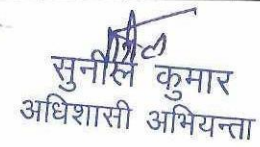 सुनील कुमार
अधिशासी अभियन्ता